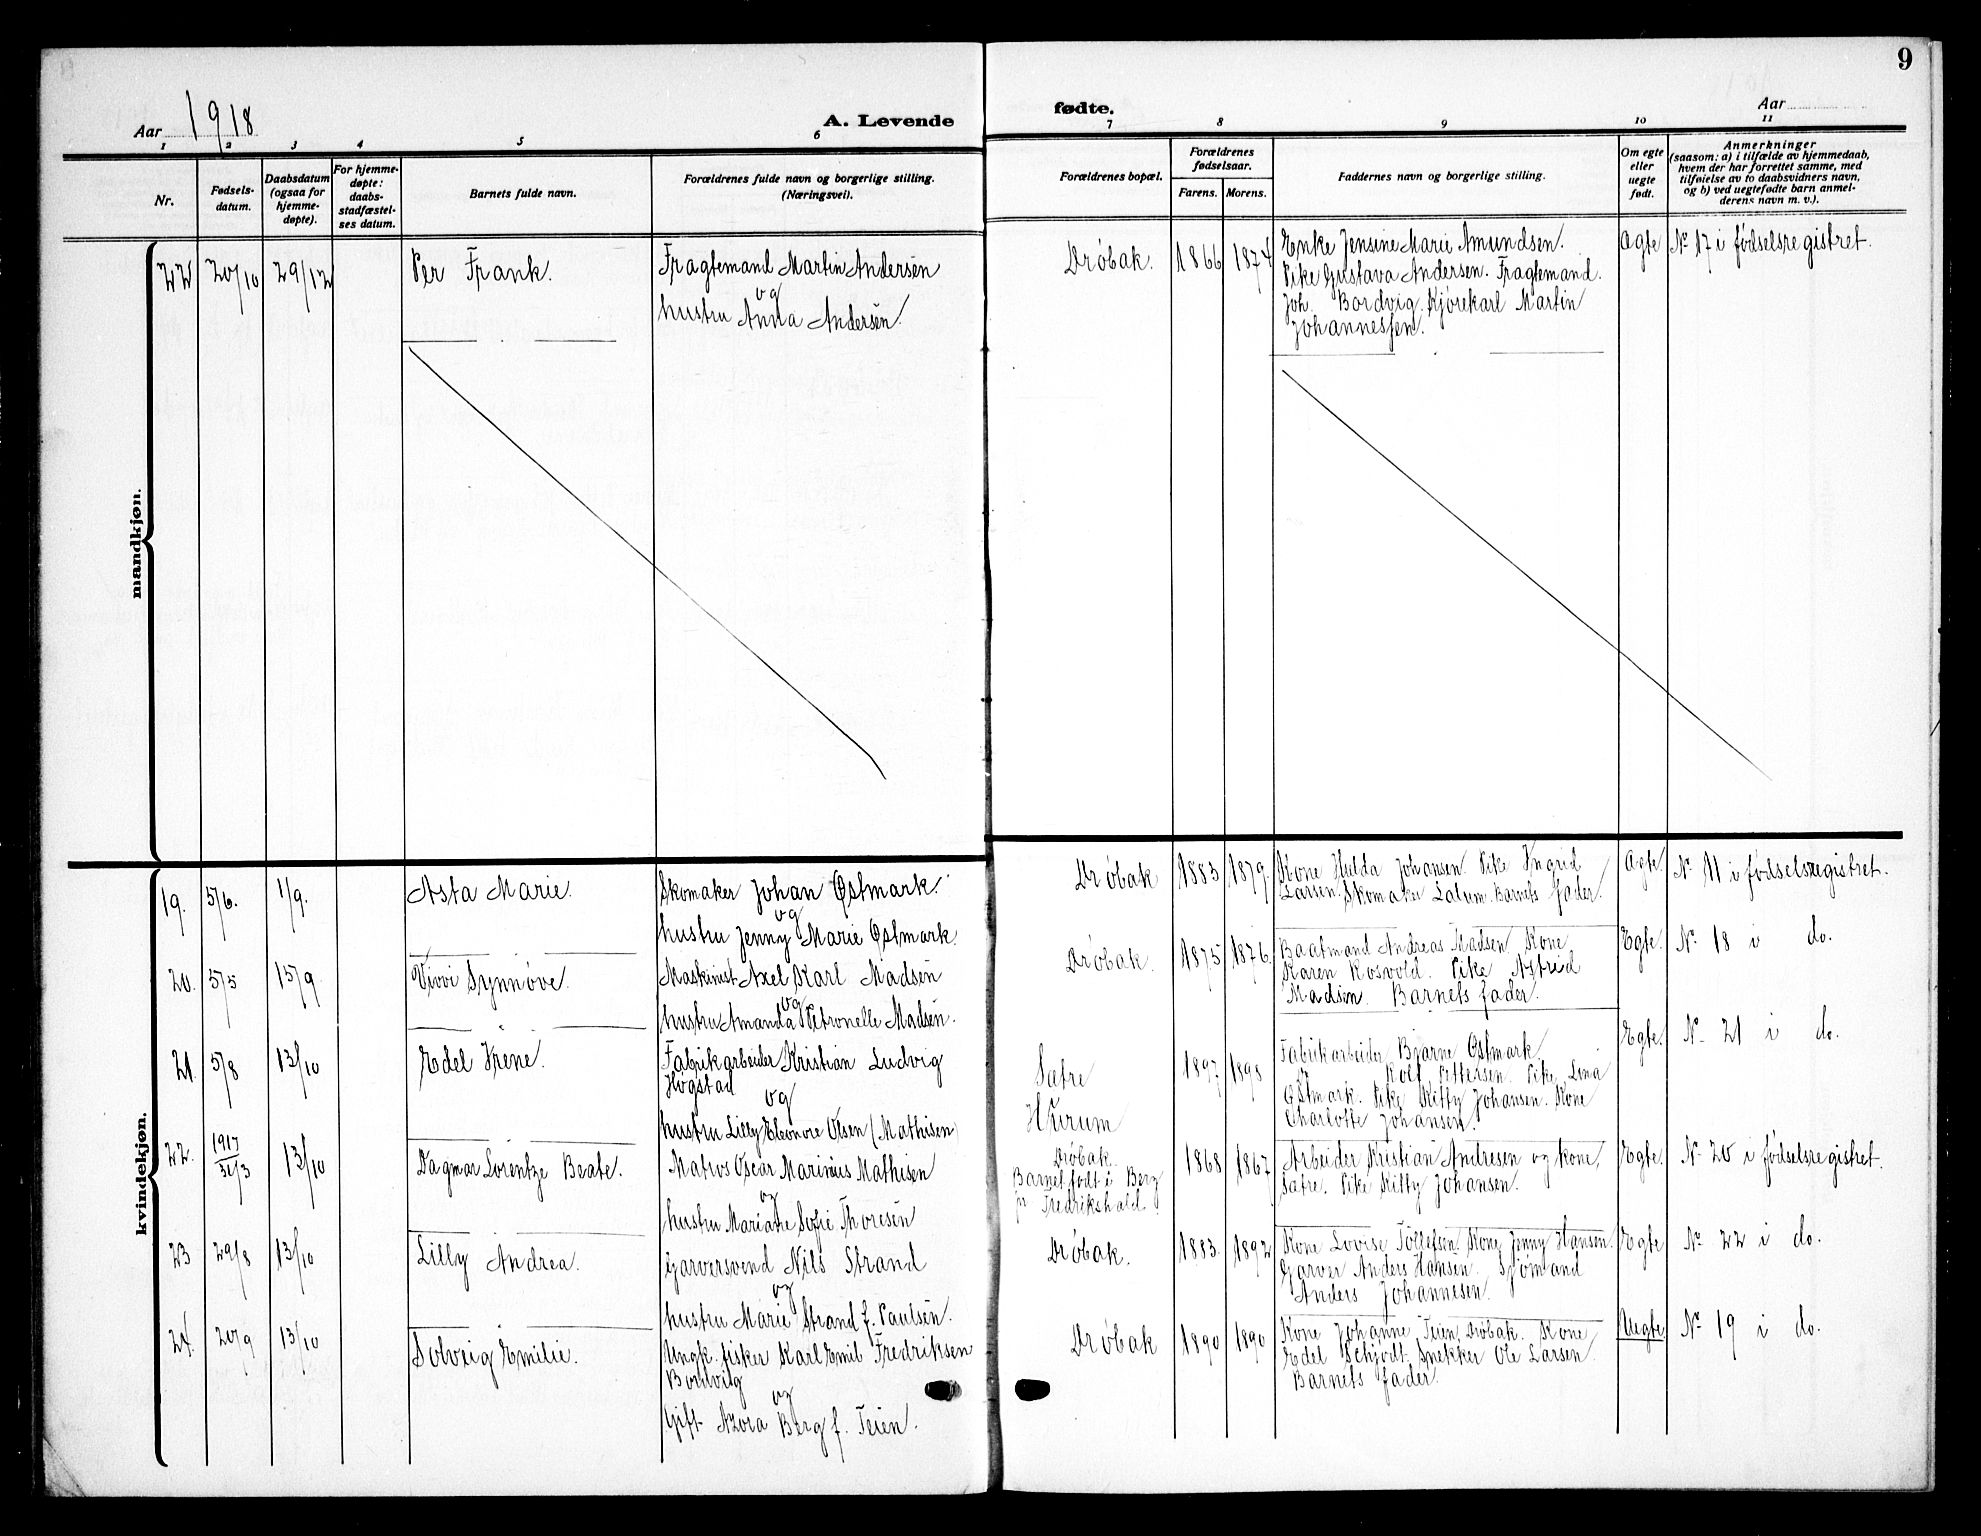 9
Aar 1918
A. Levende
fødte.
Aar
1 2 3 4 5 6 7 8 9 10 11
Nr.
Fødsels-
datum.
Daabsdatum
(ogsaa for
hjemme-
døpte).
For hjemme-
døpte:
daabs-
stadfæstel-
ses datum.
Barnets fulde navn.
Forældrenes fulde navn og borgerlige stilling.
(Næringsvei).
Forældrenes bopæl.
Forældrenes
fødselsaar.
Farens. Morens.
Faddernes navn og borgerlige stilling.
Om egte
eller
uegte
født.
Anmerkninger
(saasom: a) i tilfælde av hjemmedaab,
hvem der har forrettet samme, med
tilføielse av to daabsvidners navn,
og b) ved uegtefødte barn anmel-
derens navn m. v.).
mandkjøn.
22 20/10 29/12 Per Frank.
Fragtemand Martin Andersen
og
hustru Anna Andersen.
Drøbak. 1866 1874
Enke Jensine Marie Amundsen.
Pike Gustava Andersen. Fragtemand.
Joh. Bordvig. Kjørekarl Martin
Johannessen.
Ægte No 17 i fødselsregistret.
kvindekjøn.
19. 5/6. 1/9. Asta Marie.
Skomaker Johan Østmark.
og
hustru Jenny Marie Østmark.
Drøbak 1883 1879.
Kone Hulda Johansen. Pike Ingrid
Larsen. Skomaker Latum. Barnets fader.
Ægte. No 11 i fødselsregistret.
20. 5/5 15/9 Vivi Synnøve.
Maskinist Axel Karl Madsen
og
hustru Amanda Petronelle Madsen.
Drøbak. 1875 1876.
Baatmand Andreas Madsen. Kone
Karen Kosvold. Pike Astrid
Madsen. Barnets fader.
Egte. No 18 i do.
21. 5/8 13/10 Edel Irene.
Fabrikarbeider Kristian Ludvig
Høgstad
og
hustru Lilly Eleonore Olsen (Mathisen)
Sætre
Hurum
1897 1898
Fabrikarbeider Bjarne Østmark.
Rolf Pettersen. Pike Lina
Østmark. Pike Kitty Johansen. Kone
Charlotte Johansen.
Egte. No 21 i do.
22. 1917 31/3 13/10 Dagmar Lorentze Beate.
Matros Oscar Marinius Mathisen
og
hustru Mariane Sofie Thoresen
Drøbak.
Barnet født i Berg
pr Fredrikshald.
1868 1867
Arbeider Kristian Andresen og kone,
Sætre. Pike Kitty Johansen.
Egte. No 20 i fødselsregistret.
23 29/8 13/10 Lilly Andrea.
Garversvend Nils Strand
og
hustru Marie Strand f. Paulsen.
Drøbak. 1883. 1892
Kone Lovise Tollefsen. Kone Jenny Hansen
Garver Anders Hansen. Sjømand
Anders Johannesen.
Egte No 22 i do.
24. 20/9 13/10 Solveig Emilie.
Ungk. fisker Karl Emil Fredriksen
Bordvig
og
Gift Azora Berg f. Teien.
Drøbak 1890 1890
Kone Johanne Teien, Drøbak. Kone
Edel Schjødt. Snekker Ole Larsen.
Barnets fader.
Uegte. No 19 i do.